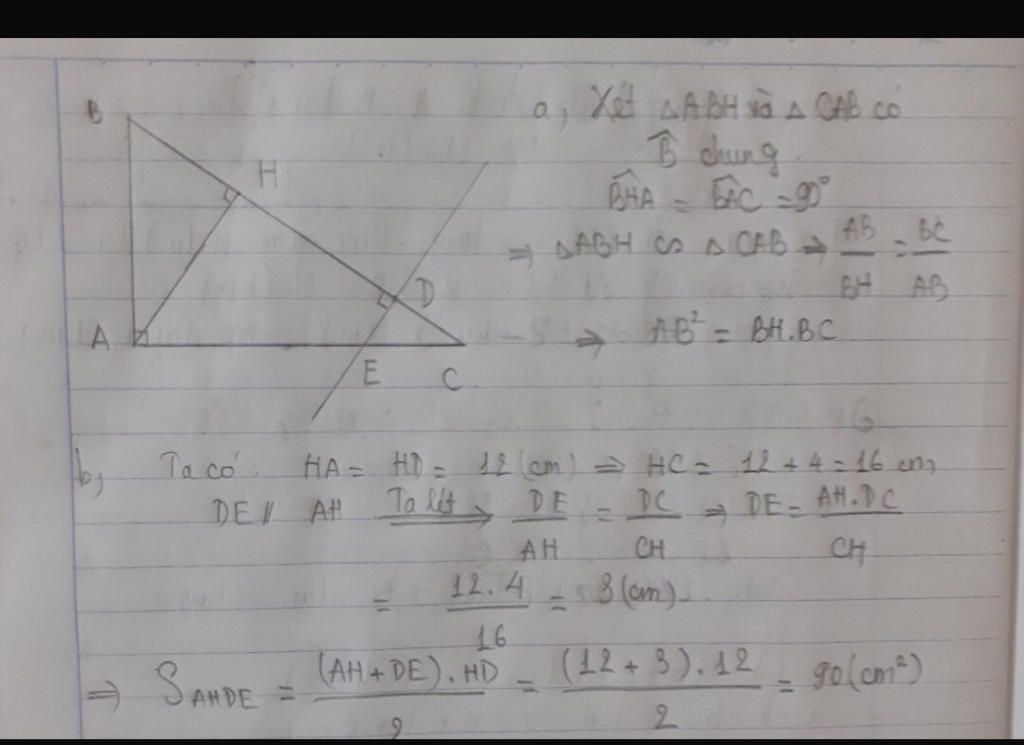 a, Xét △ABH và △CAB có
B̂ chung.
B
H
D
A
E
C
BHÂ = BÂC = 90°
⇒ △ABH ∽ △CAB ⇒ AB/BH = BC/AB
⇒ AB² = BH.BC
b, Ta có: HA = HD = 12 (cm) ⇒ HC = 12 + 4 = 16 cm,
DE // AH Ta lét ⇒ DE/AH = DC/CH ⇒ DE = AH.DC/CH
= 12.4/16 = 3 (cm).
⇒ S AHDE = (AH+DE).HD/2 = (12+3).12/2 = 90 (cm²)